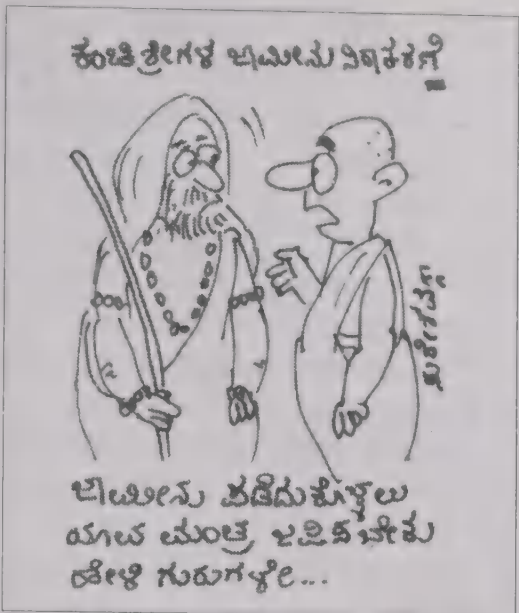 ಕಂಚಿ ಶ್ರೀಗಳ ಜಾಮೀನು ನಿರಾಕರಣೆ
ಜಾಮೀನು ಪಡೆದುಕೊಳ್ಳಲು
ಯಾವ ಮಂತ್ರ ಜಪಿಸಬೇಕು
ಹೇಳಿ ಗುರುಗಳೇ...